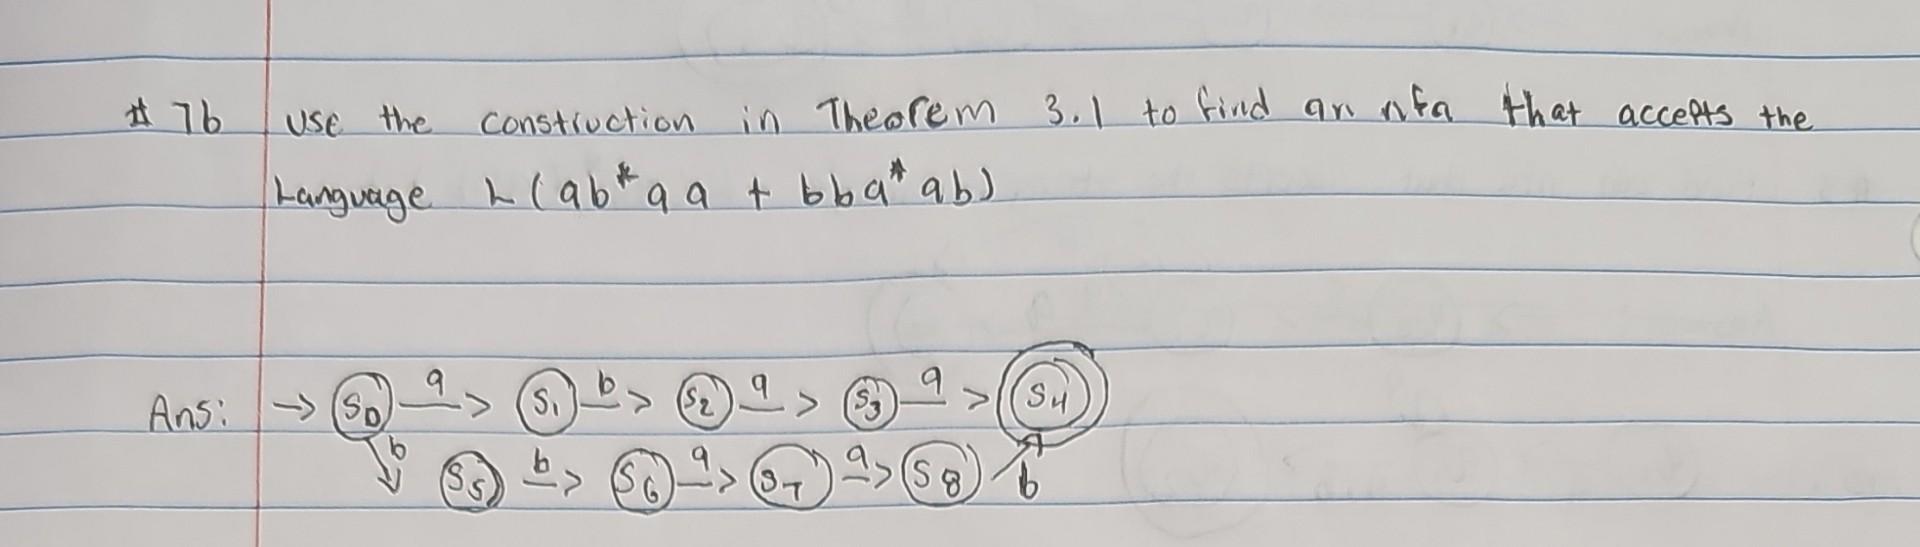 # 7b use the construction in Theorem 3.1 to find an nfa that accepts the
Language L (ab*aa + bba*ab)
Ans: → S0 a> S1 b> S2 a> S3 a> S4
b S5 b> S6 a> S7 a> S8 b